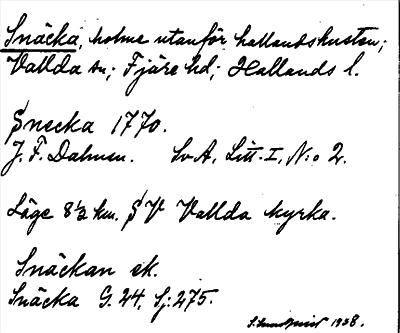 Snäcka, holme utanför hallandskusten;
Vallda sn; Fjäre hd; Hallands l.
Snecka 1770.
J. F. Dalman. SvA, Litt. I, N:o 2.
Läge 8½ km. SV Vallda kyrka.
Snäckan ek.
Snäcka G. 24, Sj: 275.
1938.